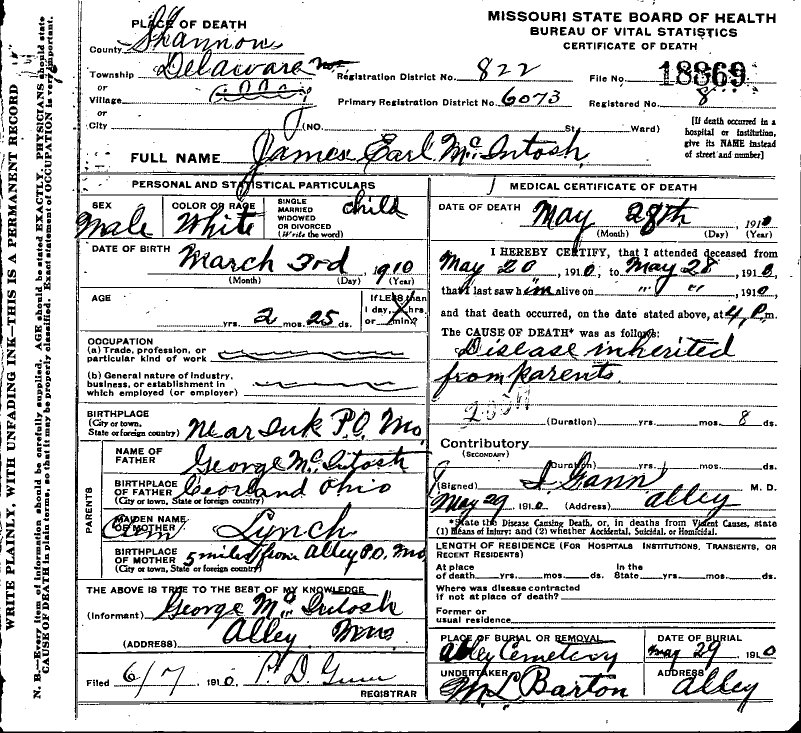 MISSOURI STATE BOARD OF HEALTH
BUREAU OF VITAL STATISTICS
CERTIFICATE OF DEATH
PLACE OF DEATH
County Shannon
Township Delaware Mo
or
Village Alley
or
City (NO. St. Ward)
Registration District No. 822
File No. 18869
Primary Registration District No. 6073
Registered No. 8
[If death occurred in a hospital or institution, give its NAME instead of street and number]
FULL NAME James Earl McIntosh
PERSONAL AND STATISTICAL PARTICULARS
SEX Male
COLOR OR RACE White
SINGLE MARRIED WIDOWED OR DIVORCED (Write the word) child
DATE OF BIRTH March 3rd 1910
(Month) (Day) (Year)
AGE yrs. 2 mos. 25 ds.
If LESS than 1 day, hrs. or min?
OCCUPATION
(a) Trade, profession, or particular kind of work
(b) General nature of industry, business, or establishment in which employed (or employer)
BIRTHPLACE
(City or town, State or foreign country) near Ink P.O. Mo
PARENTS
NAME OF FATHER George McIntosh
BIRTHPLACE OF FATHER Ohio
(City or town, State or foreign country)
MAIDEN NAME OF MOTHER Lynch
BIRTHPLACE OF MOTHER 5 miles from Alley P.O. Mo
(City or town, State or foreign country)
THE ABOVE IS TRUE TO THE BEST OF MY KNOWLEDGE
(Informant) George McIntosh
(ADDRESS) Alley Mo
Filed 6/7 1910. P. D.
REGISTRAR
MEDICAL CERTIFICATE OF DEATH
DATE OF DEATH May 28th, 1910
(Month) (Day) (Year)
I HEREBY CERTIFY, that I attended deceased from
May 20, 1910, to May 28, 1910,
that I last saw him alive on " ", 1910,
and that death occurred, on the date stated above, at 4, P. m.
The CAUSE OF DEATH* was as follows:
Disease inherited
from parents.
(Duration) yrs. mos. 8 ds.
Contributory
(SECONDARY)
(Duration) yrs. mos. ds.
(Signed) Gann M. D.
May 29 1910 (Address) Alley
*State the Disease Causing Death, or, in deaths from Violent Causes, state (1) Means of Injury: and (2) whether Accidental, Suicidal, or Homicidal.
LENGTH OF RESIDENCE (FOR HOSPITALS INSTITUTIONS, TRANSIENTS, OR RECENT RESIDENTS)
At place of death yrs. mos. ds. In the State yrs. mos. ds.
Where was disease contracted if not at place of death?
Former or usual residence
PLACE OF BURIAL OR REMOVAL Alley Cemetery
DATE OF BURIAL May 29 1910
UNDERTAKER M L Barton
ADDRESS Alley
WRITE PLAINLY, WITH UNFADING INK—THIS IS A PERMANENT RECORD
N. B.—Every item of information should be carefully supplied. AGE should be stated EXACTLY. PHYSICIANS should state
CAUSE OF DEATH in plain terms, so that it may be properly classified. Exact statement of OCCUPATION is very important.